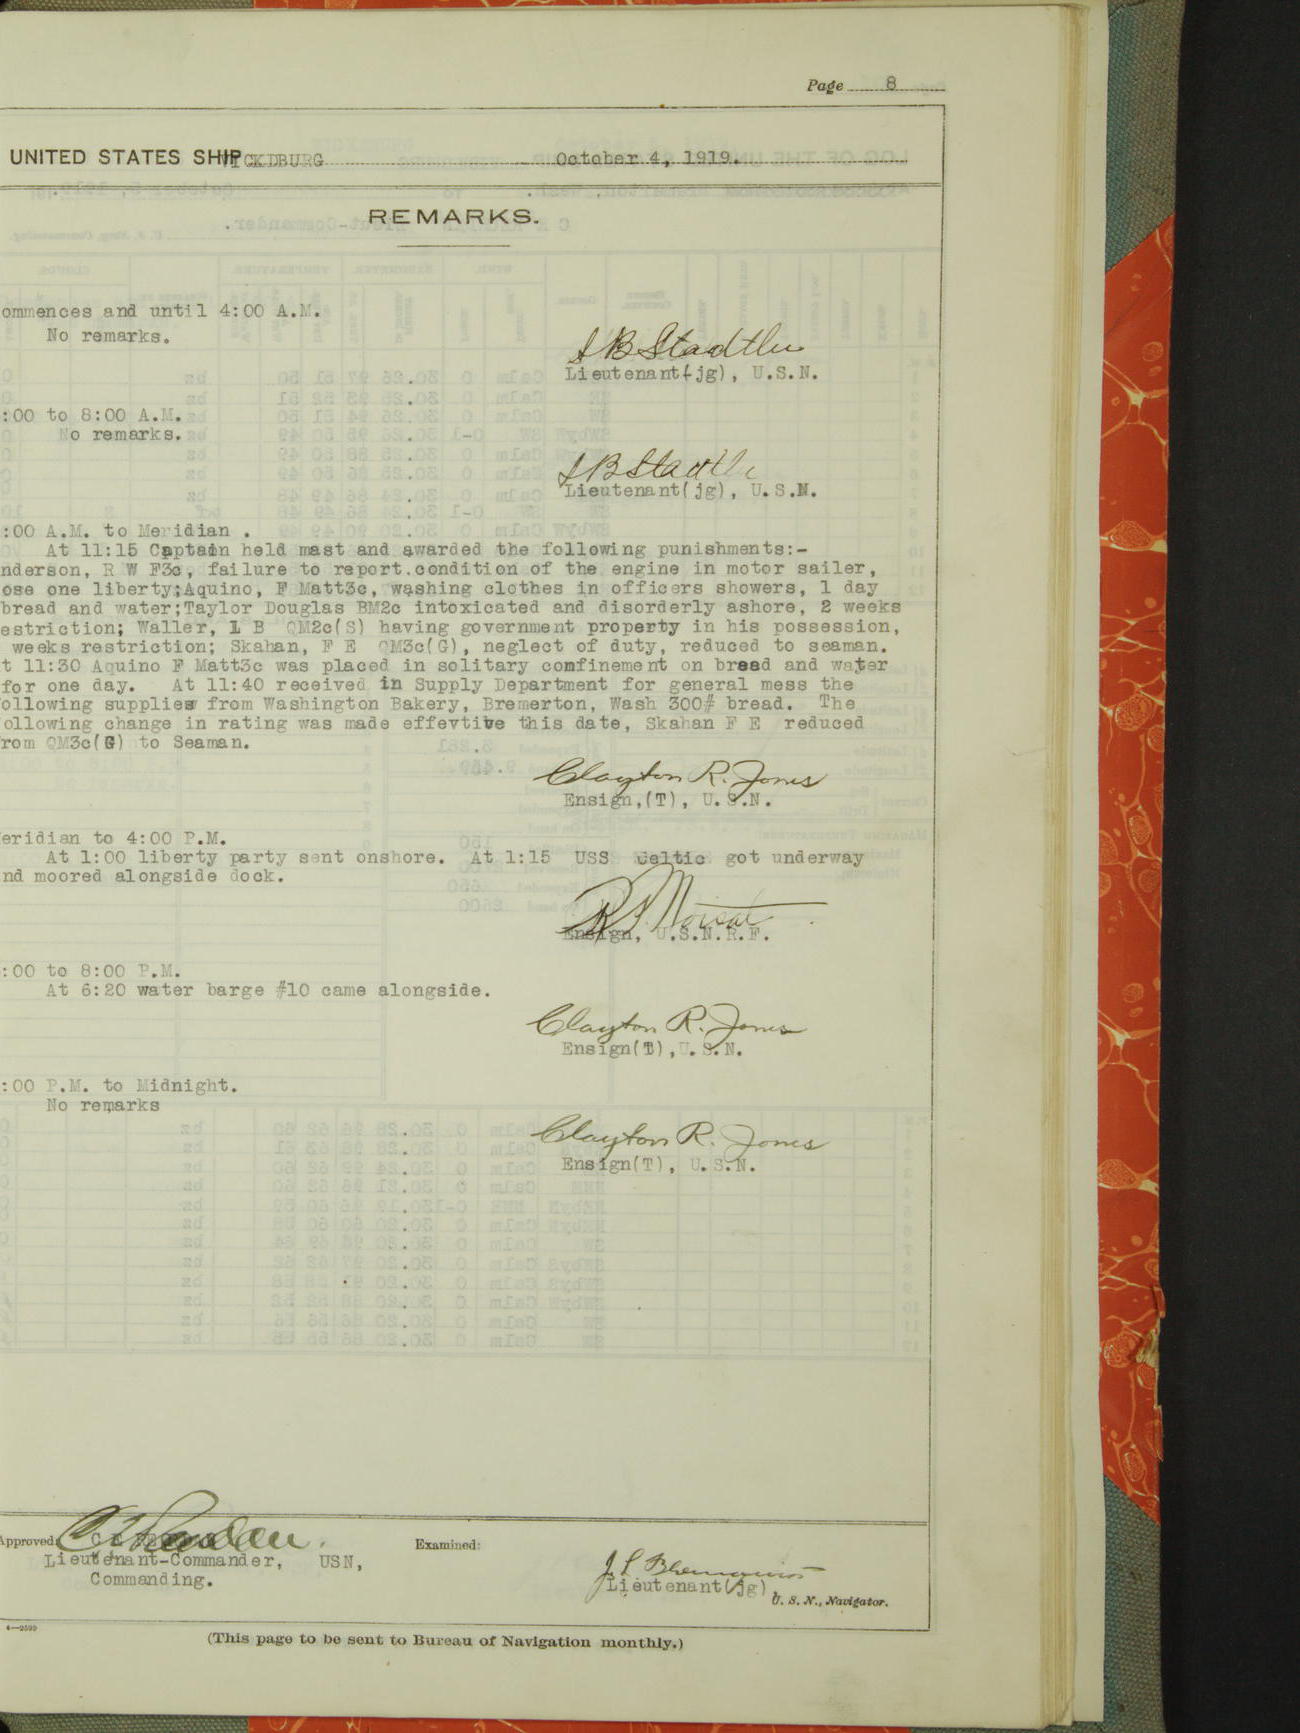 Page 8
UNITED STATES SHIP VICKDBURG October 4, 1919.
REMARKS.
ommences and until 4:00 A.M.
No remarks.
Lieutenant(jg), U.S.N.
:00 to 8:00 A.M.
No remarks.
Lieutenant(jg), U.S.N.
:00 A.M. to Meridian .
At 11:15 Captain held mast and awarded the following punishments:-
nderson, R W F3c, failure to report.condition of the engine in motor sailer,
ose one liberty;Aquino, F Matt3c, washing clothes in officers showers, 1 day
bread and water;Taylor Douglas BM2c intoxicated and disorderly ashore, 2 weeks
estriction; Waller, L B QM2c(S) having government property in his possession,
weeks restriction; Skahan, F E QM3c(G), neglect of duty, reduced to seaman.
t 11:30 Aquino F Matt3c was placed in solitary confinement on bread and water
for one day. At 11:40 received in Supply Department for general mess the
ollowing supplies from Washington Bakery, Bremerton, Wash 300# bread. The
ollowing change in rating was made effevtive this date, Skahan F E reduced
rom QM3c(G) to Seaman.
Clayton R. Jones
Ensign,(T), U.S.N.
eridian to 4:00 P.M.
At 1:00 liberty party sent onshore. At 1:15 USS Celtic got underway
nd moored alongside dock.
Ensign, U.S.N.R.F.
:00 to 8:00 P.M.
At 6:20 water barge #10 came alongside.
Clayton R. Jones
Ensign(T),U.S.N.
:00 P.M. to Midnight.
No remarks
Clayton R. Jones
Ensign(T), U.S.N.
Approved:
Examined:
Lieutenant-Commander, USN,
Commanding.
Lieutenant(jg),
U. S. N., Navigator.
(This page to be sent to Bureau of Navigation monthly.)